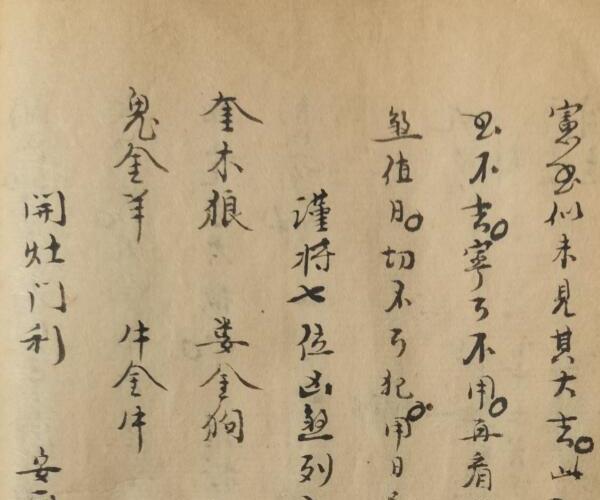 憲书似未見其大吉。此
书不吉。寧可不用。再看
煞值日。切不可犯。用日
謹將七位凶煞列
奎木狼 婁金狗
鬼金羊 牛金牛
開灶门利 安